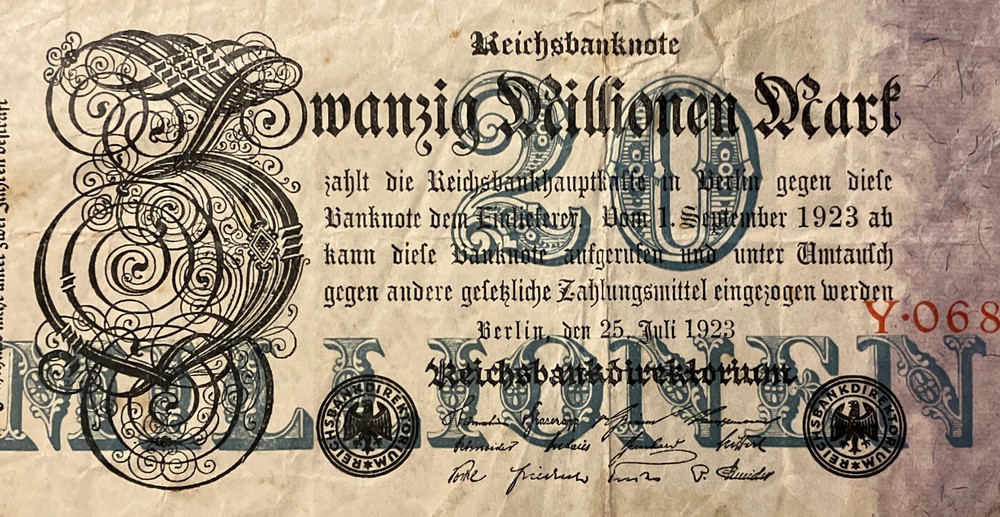 Reichsbanknote
Zwanzig Millionen Mark
20
zahlt die Reichsbankhauptkasse in Berlin gegen diese
Banknote dem Einlieferer. Vom 1. September 1923 ab
kann diese Banknote aufgerufen und unter Umtausch
gegen andere gesetzliche Zahlungsmittel eingezogen werden
Y·068
Berlin, den 25. Juli 1923
MILLIONEN
Reichsbankdirektorium
REICHSBANKDIREKTORIUM
REICHSBANKDIREKTORIUM